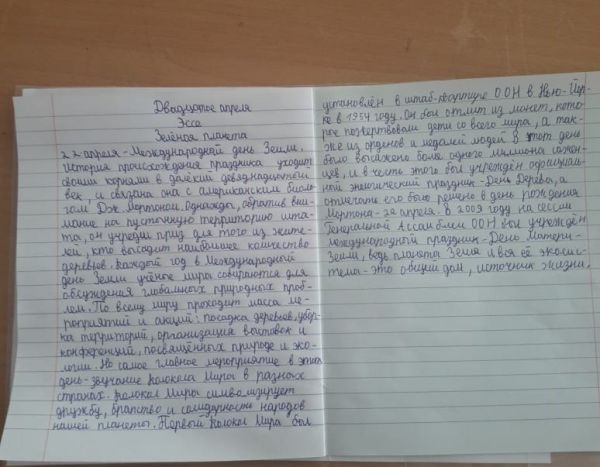 Двадцатое апреля
Эссе
Зелёная планета
22 апреля - Международный день Земли.
История происхождения праздника уходит
своими корнями в далёкий девятнадцатый
век, и связана она с американским биоло-
гом Дж. Мортоном. Однажды, обратив вни-
мание на пустынную территорию шта-
та, он учредил приз для того из жите-
лей, кто высадит наибольшее количество
деревьев. Каждый год в Международный
день Земли учёные мира собираются для
обсуждения глобальных природных проб-
лем. По всему миру проходит масса ме-
роприятий и акций: посадка деревьев, убор-
ка территорий, организация выставок и
конференций, посвящённых природе и эко-
логии. Но самое главное мероприятие в этот
день - звучание Колокола Мира в разных
странах. Колокол Мира символизирует
дружбу, братство и солидарность народов
нашей планеты. Первый Колокол Мира был
установлён в штаб-квартире ООН в Нью-Йор-
ке в 1954 году. Он был отлит из монет, кото-
рые пожертвовали дети со всего мира, а так-
же из орденов и медалей людей. В этот день
было высажено более одного миллиона сажен-
цев, и в честь этого был учреждён официаль-
ный экологический праздник - День Дерева, а
отмечать его было решено в день рождения
Мортона - 22 апреля. В 2009 году на сессии
Генеральной Ассамблеи ООН был учреждён
международный праздник - День Матери-
Земли, ведь планета Земля и вся её экосис-
тема - это общий дом, источник жизни.